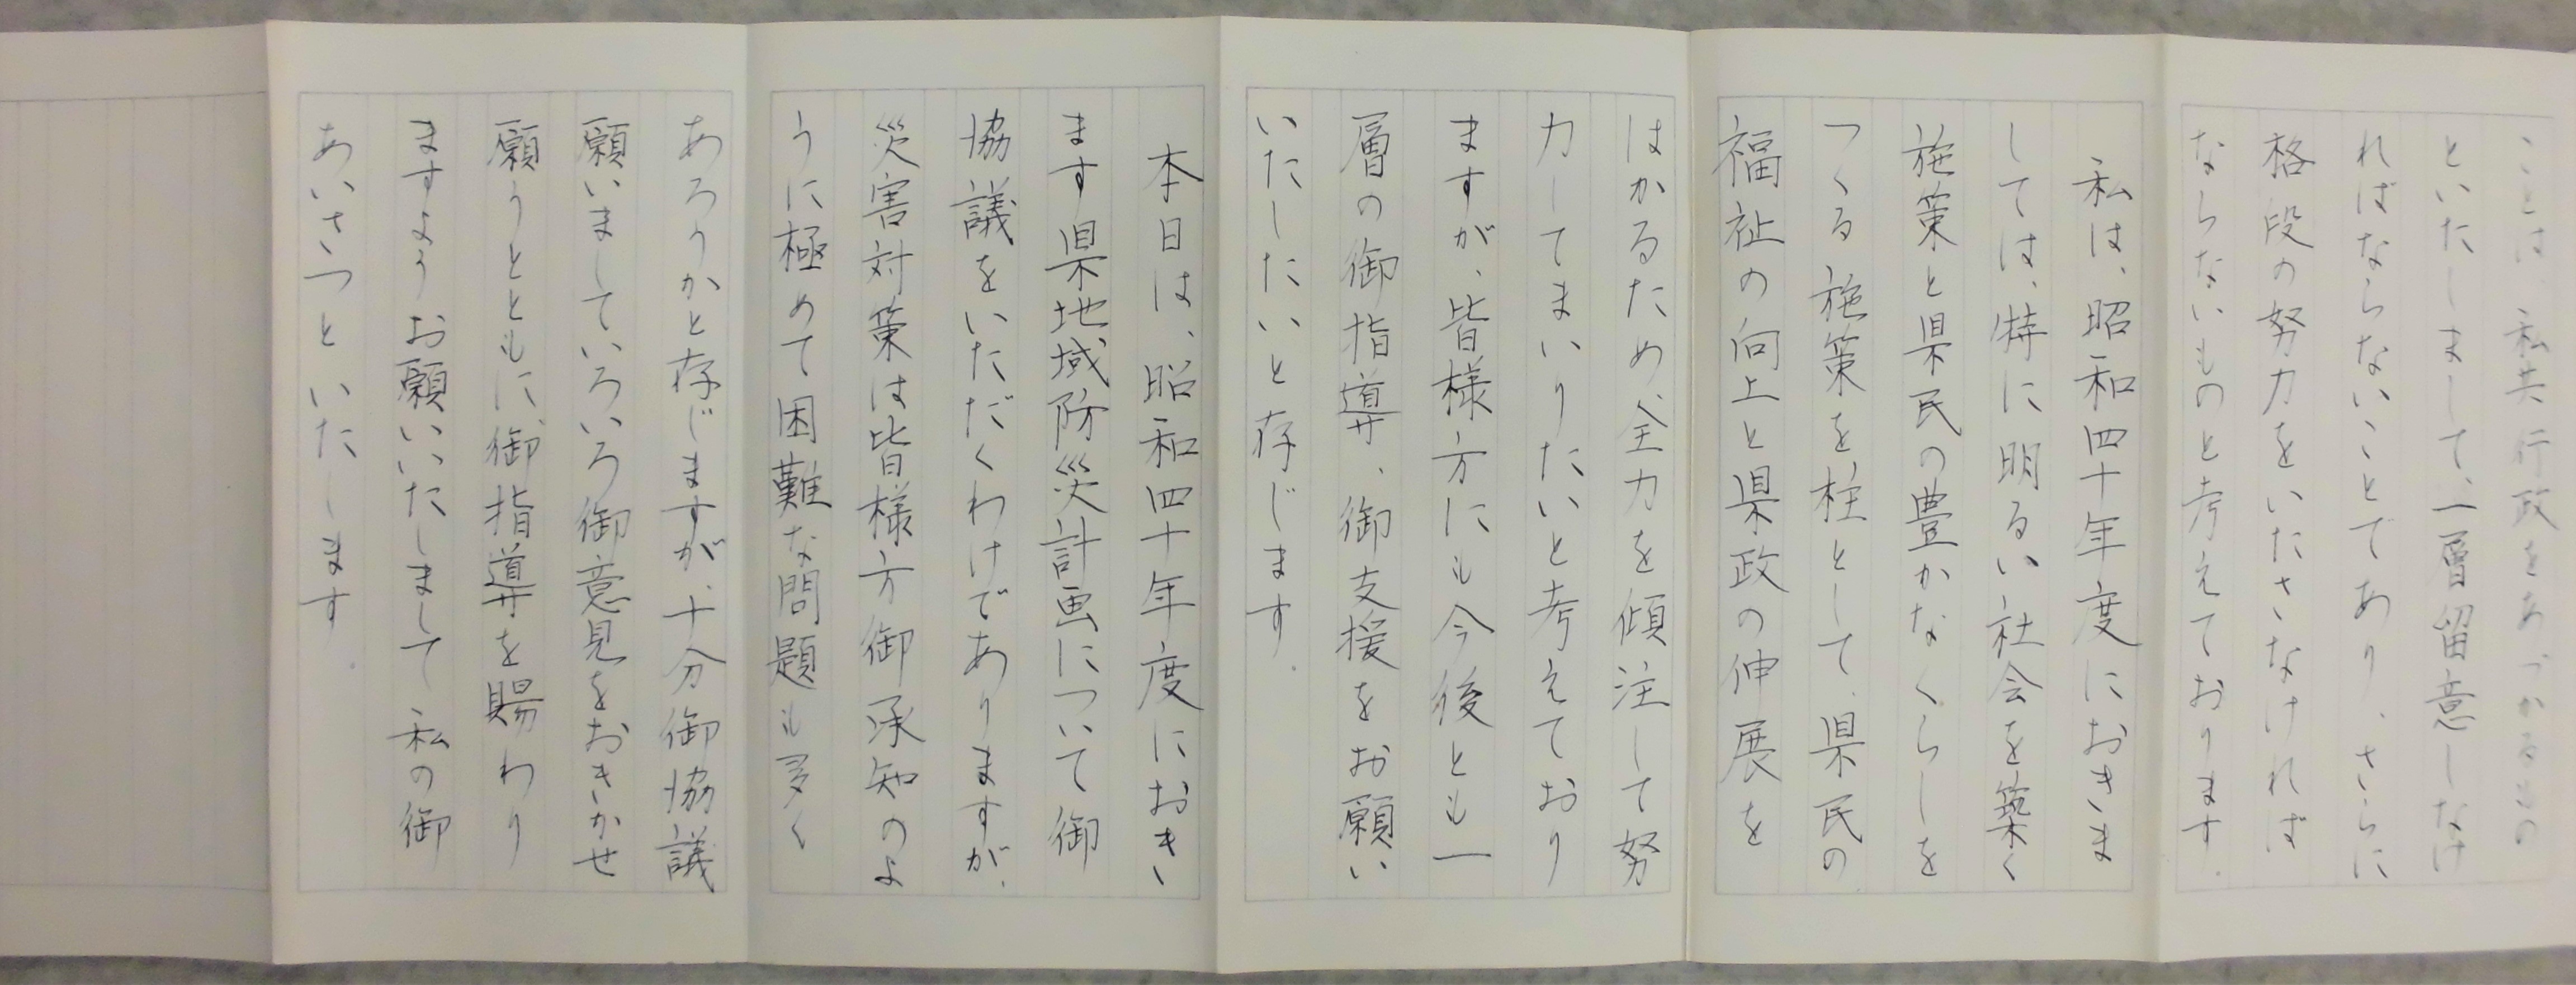 ことは、私共行政をあづかるもの
といたしまして、一層留意しなけ
ればならないことであり、さらに
格段の努力をいたさなければ
ならないものと考えております。
私は、昭和四十年度におきま
しては、特に明るい社会を築く
施策と県民の豊かなくらしを
つくる施策を柱として、県民の
福祉の向上と県政の伸展を
はかるため、全力を傾注して努
力してまいりたいと考えており
ますが、皆様方にも今後とも一
層の御指導、御支援をお願い
いたしたいと存じます。
本日は、昭和四十年度におき
ます県地域防災計画について御
協議をいただくわけでありますが、
災害対策は皆様方御承知のよ
うに極めて困難な問題も多く
あろうかと存じますが、十分御協議
願いましていろいろ御意見をおきかせ
願うとともに、御指導を賜わり
ますようお願いいたしまして私の御
あいさつといたします。